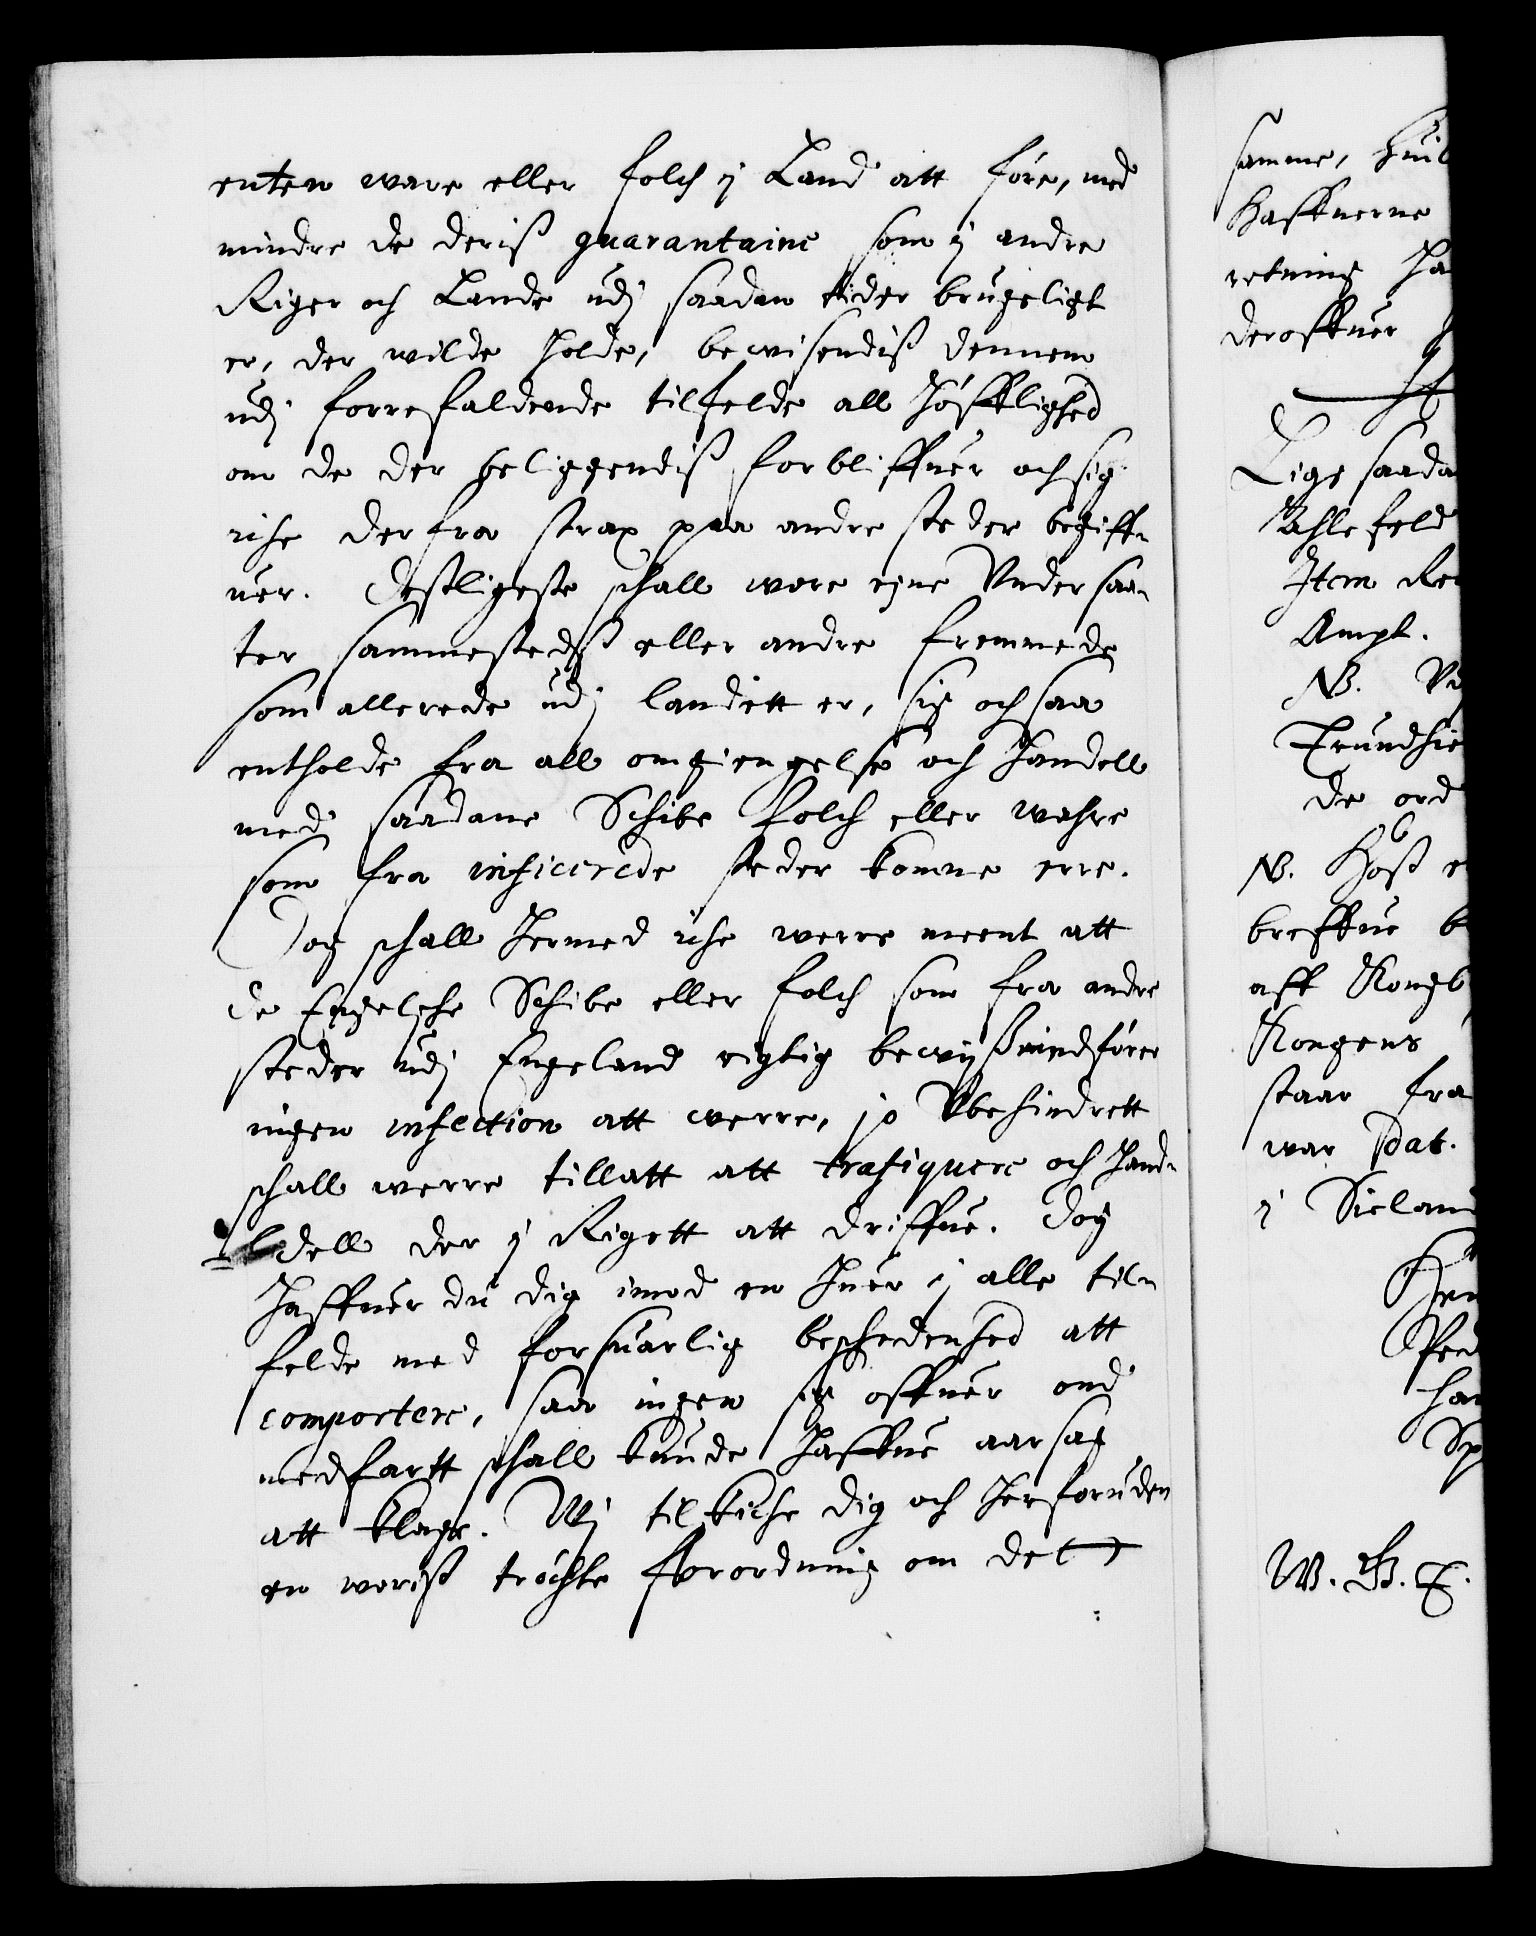 enten ware eller folch ij Land att före, med
mindre de deriß quarantaine som ij andre
Riger och Lande udj saadan tider brugeligt
er, der wilde holde, bewisendiß dennem
udj forrefaldende tilfelde all höfflighed
om de der beliggendiß forbliffuer och sig
iche derfra strax paa andre steder begiff-
uer. Desligeste schall wore egne Undersaa-
ter sammestedß eller andre fremmede
som allerede udj landett er, sig ochsaa
entholde fra all omgiengelse och handell
med saadane Schibe folch eller wahre
som fra inficerede steder komne erre.
Dog schall hermed iche werre meent att
de Engelsche Schibe eller folch som fra andre
steder udj Engeland rigtig bewyß medförer
ingen infection att werre, jo Ubehindrett
schall werre tillatt att trafiquere och hand-
dell der ij Rigett att driffue. Dog
haffuer du dig imod en huer ij alle til-
felde med forsuarlig beschedenhed att
comportere, saa ingen sig offuer ond
medfartt schall kunde haffue aarsag
att klage. Wj tilskiche dig och herforuden
en woriß tröchte fforordning om det
samme, huil
Haffnerne
retning ha
deroffuer
Lige saada
Ahlefeld
Item Re
Ampt.
NB.
Trundhie
de ord
NB. Höß e
breffue b
aff Kongl
Kongens
staar fra
war dat.
i Sieland
Hen
Ped
han
Sp
W. B. E.